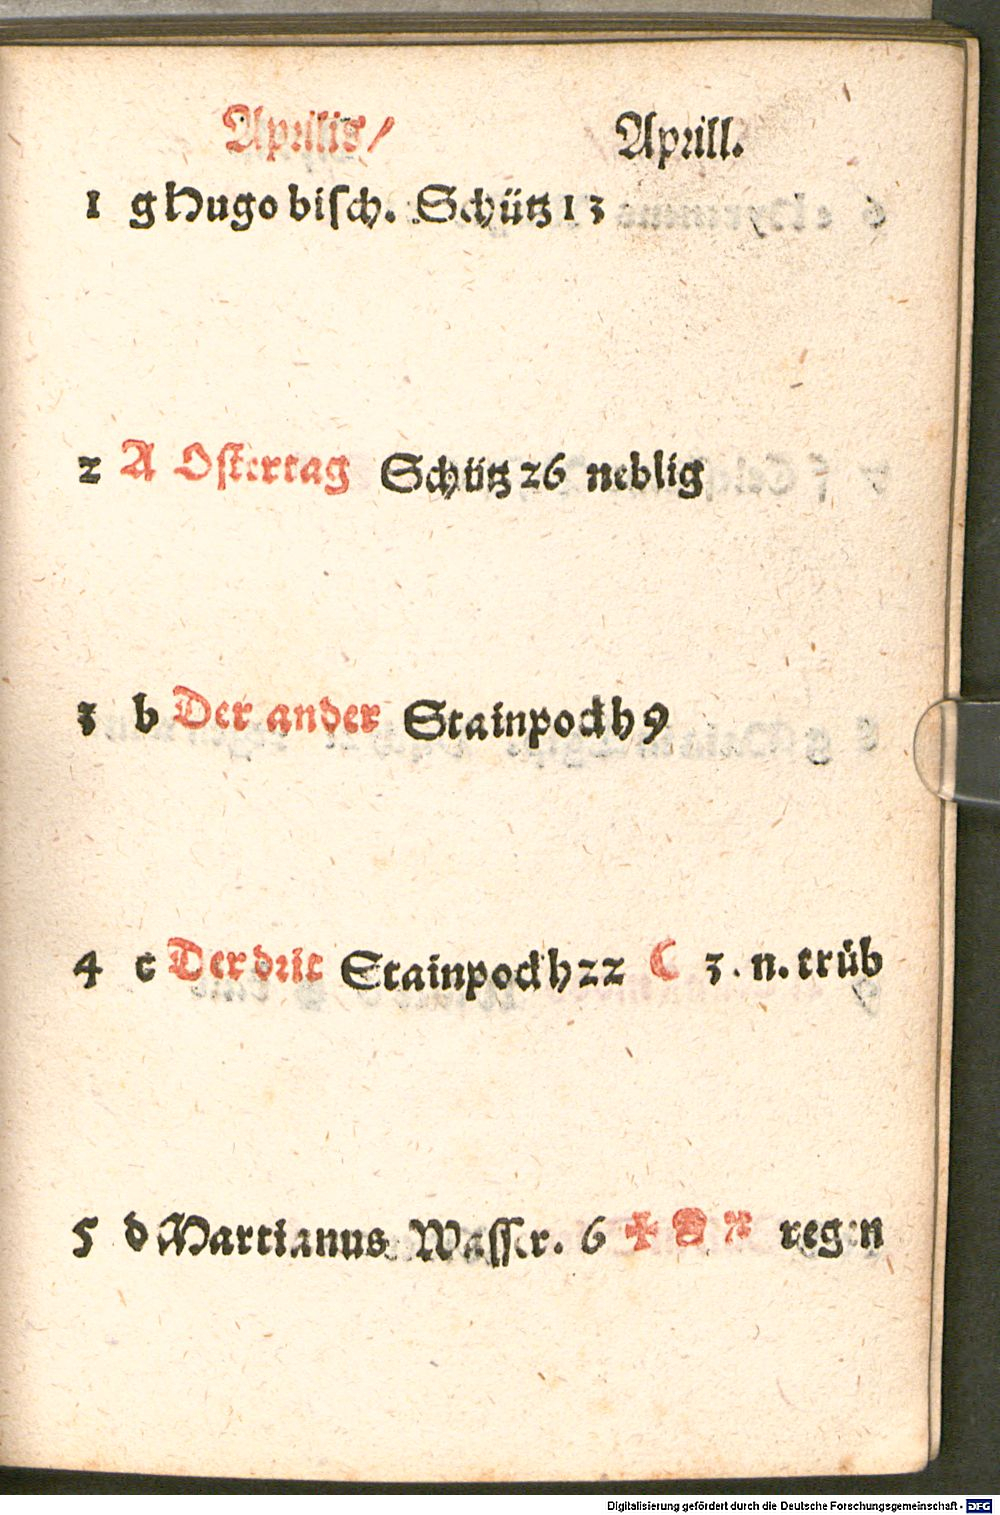 Aprilis/ Aprill.
1 g Hugo bisch. Schütz 13
2 A Ostertag Schütz 26 neblig
3 b Der ander Stainpockh 9
4 c Der drit Stainpockh 22 ☾ 3. n. trüb
5 d Martianus Wasser. 6 ✠ regen
Digitalisierung gefördert durch die Deutsche Forschungsgemeinschaft - DFG